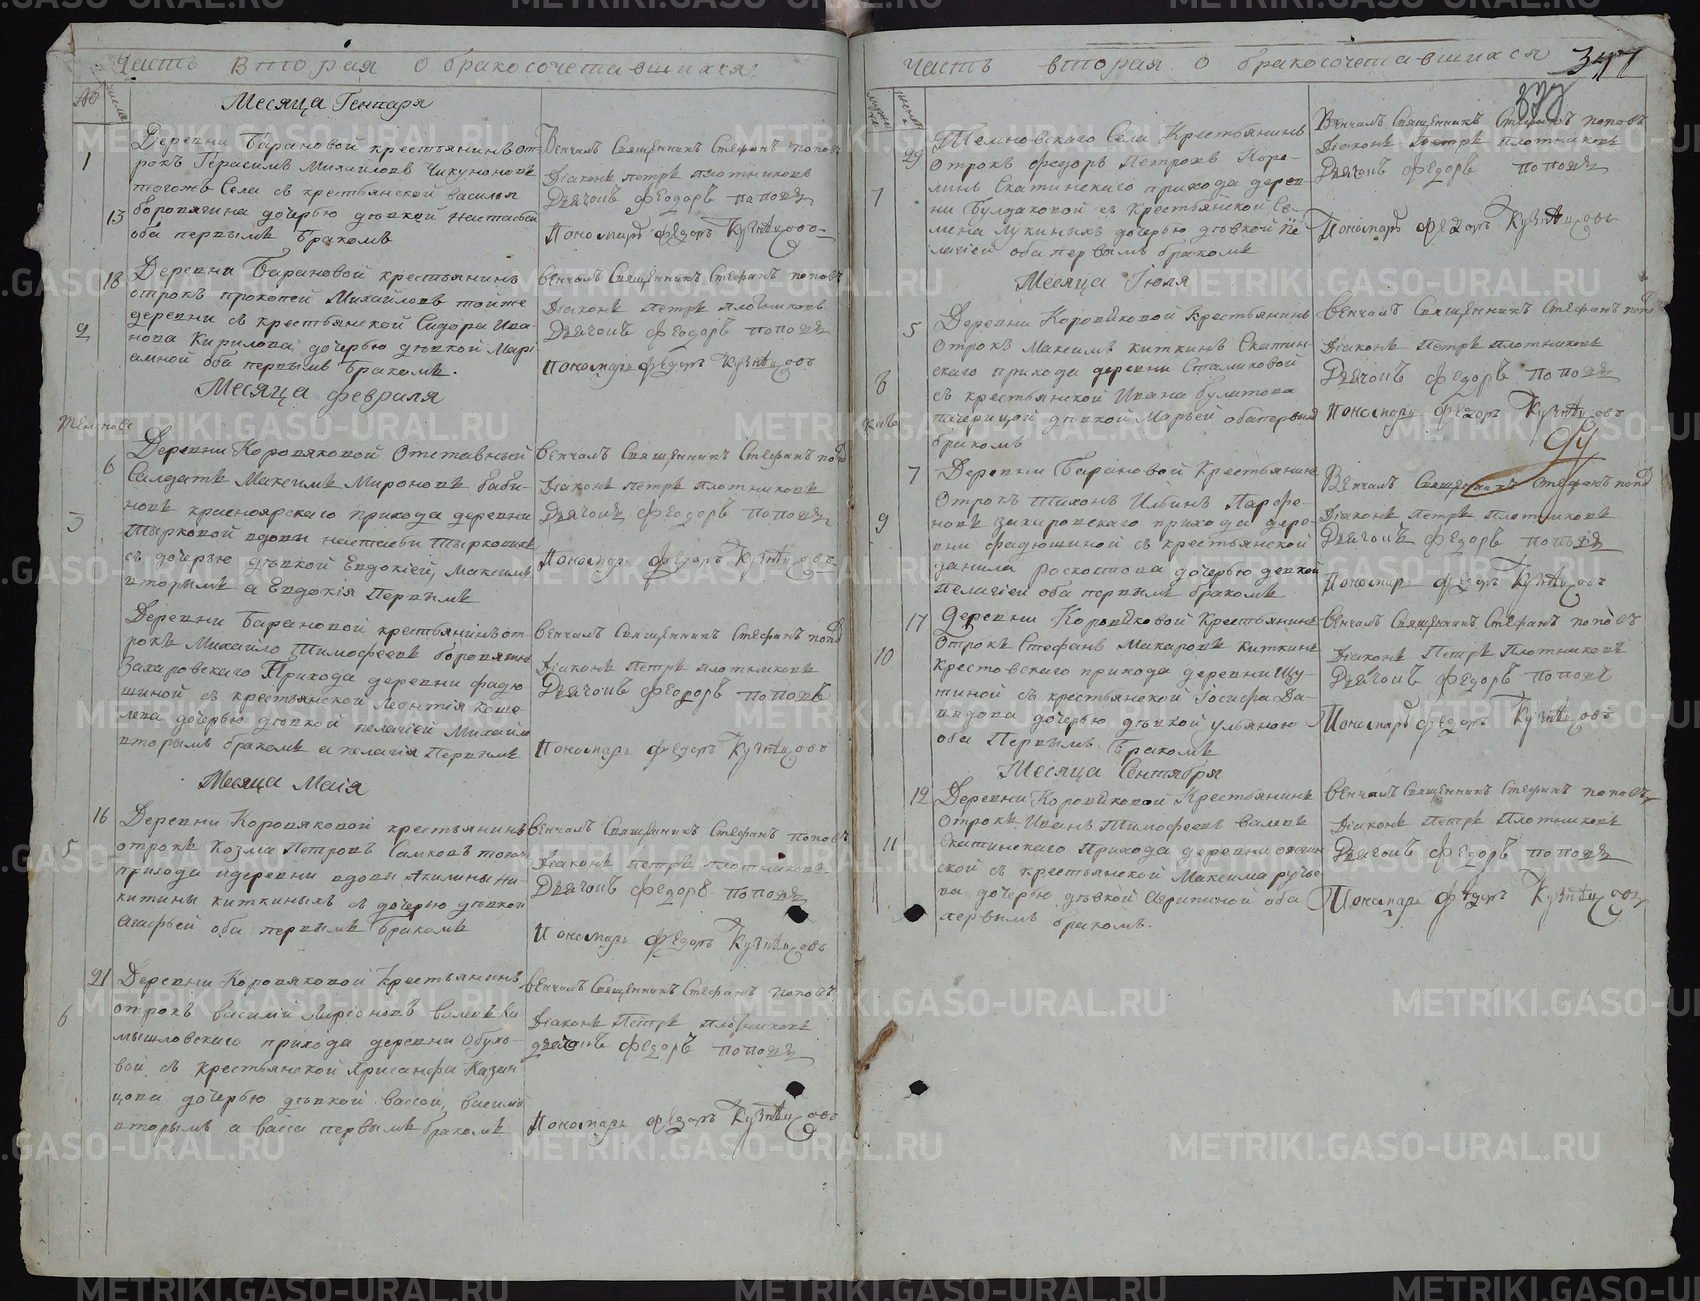 Часть Вторая о бракосочетавшихся
№ числа
Месяца Генваря
1
13
Деревни Барановой крестьянинъ от-
рокъ Герасимъ Михайловъ
тогожъ Села съ крестьянской василья
боровягина дочерью девкой настасьей
оба первымъ бракомъ
Венчалъ Священникъ Стефанъ поповъ
Діаконъ петръ плотниковъ
Дьячокъ феодоръ поповъ
Пономарь федоръ Кузнецовъ
18
2
Деревни Барановой крестьянинъ
отрокъ прокопей Михайловъ тойже
деревни съ крестьянской Сидора Ива-
нова Кирилова дочерью девкой Мари-
амной оба первымъ бракомъ.
Венчалъ Священникъ Стефанъ поповъ
Діаконъ петръ плотниковъ
Дьячокъ феодоръ поповъ
Пономарь федоръ Кузнецовъ
Месяца февраля
6
3
Деревни Коровяковой Отставный
Салдатъ Максимъ Мироновъ баби-
новъ красноярскаго прихода деревни
Тырковой вдовы настасьи Тырковыхъ
съ дочерью девкой Евдокіей, Максимъ
вторымъ а Евдокія Первымъ
Венчалъ Священникъ Стефанъ попов
Діаконъ Петръ плотниковъ
Дьячокъ феодоръ поповъ
Пономарь федоръ Кузнецовъ
Деревни Барановой крестьянинъ от-
рокъ Михайло Тимофеевъ боровягинъ
Захаровскаго Прихода деревни фадю-
шиной съ крестьянской Леонтія Коше-
лева дочерью девкой пелагіей Михайло
вторымъ бракомъ а пелагія Первымъ
Венчалъ Священникъ Стефанъ попов
Діаконъ Петръ плотниковъ
Дьячокъ феодоръ поповъ
Пономарь федоръ Кузнецовъ
Месяца Маія
16
5
Деревни Коровяковой крестьянинъ
отрокъ Козма Петровъ Самковъ тогоже
прихода и деревни вдовы Акилины Ни-
китины киткиныхъ съ дочерью девкой
Агафьей оба первымъ бракомъ
Венчалъ Священникъ Стефанъ поповъ
Діаконъ петръ плотниковъ
Дьячокъ федоръ поповъ
Пономарь федоръ Кузнецовъ
21
6
Деревни Коровяковой крестьянинъ
отрокъ василій Ларіоновъ валовъ Ка-
мышловскаго прихода деревни Обухо-
вой съ крестьянской Хрисанфа Казан-
цова дочерью девкой вассой, василій
вторымъ а васса первымъ бракомъ
Венчалъ Священникъ Стефанъ поповъ
Діаконъ Петръ плотниковъ
дьячокъ федоръ поповъ
Пономарь федоръ Кузнецовъ
Часть вторая о бракосочетавшихся
347
29
7
Темновскаго Села Крестьянинъ
отрокъ федоръ Петровъ Коре-
линъ Скатинскаго прихода дерев-
ни Булдаковой съ крестьянской Се-
мена Лукиныхъ дочерью девкой Пе-
лагіей оба первымъ бракомъ
Венчалъ Священникъ Стефанъ поповъ
Діаконъ Петръ плотниковъ
Дьячокъ федоръ поповъ
Пономарь федоръ Кузнецовъ
Месяца Іюля
5
8
Деревни Коровяковой крестьянинъ
отрокъ Максимъ киткинъ Скатин-
скаго прихода деревни Сталиковой
съ крестьянской Ивана булатова
падчерицой девкой Марьей оба первымъ
бракомъ
Венчалъ Священникъ Стефанъ попов
Діаконъ Петръ плотниковъ
Дьячокъ федоръ поповъ
Пономарь федоръ Кузнецовъ
7
9
Деревни Барановой Крестьянинъ
Отрокъ Тихонъ Ильинъ Парфе-
новъ захаровскаго прихода дере-
вни фадюшиной съ крестьянской
данила роскотова дочерью девкой
Пелагіей оба первымъ бракомъ
Венчалъ Священникъ Стефанъ попов
Діаконъ Петръ плотниковъ
Дьячокъ федоръ поповъ
Пономарь федоръ Кузнецовъ
17
10
Деревни Коровяковой Крестьянинъ
Отрокъ Стефанъ Макаровъ Киткинъ
крестовскаго прихода деревни Шу-
тиной съ крестьянской Іосифа Да-
видова дочерью девкой ульяною
оба Первымъ бракомъ
Венчалъ Священникъ Стефанъ поповъ
Діаконъ Петръ Плотниковъ
Дьячокъ федоръ поповъ
Пономарь федоръ Кузнецовъ
Месяца Сентября
12
11
Деревни Коровяковой Крестьянинъ
отрокъ Иванъ Тимофеевъ валовъ
Скатинскаго Прихода деревни
ской съ крестьянской Максима
ва дочерью девкой Агрипиной оба
первымъ бракомъ.
Венчалъ Священникъ Стефанъ поповъ
Діаконъ Петръ Плотниковъ
Дьячокъ федоръ поповъ
Пономарь федоръ Кузнецовъ
METRIKI.GASO-URAL.RU